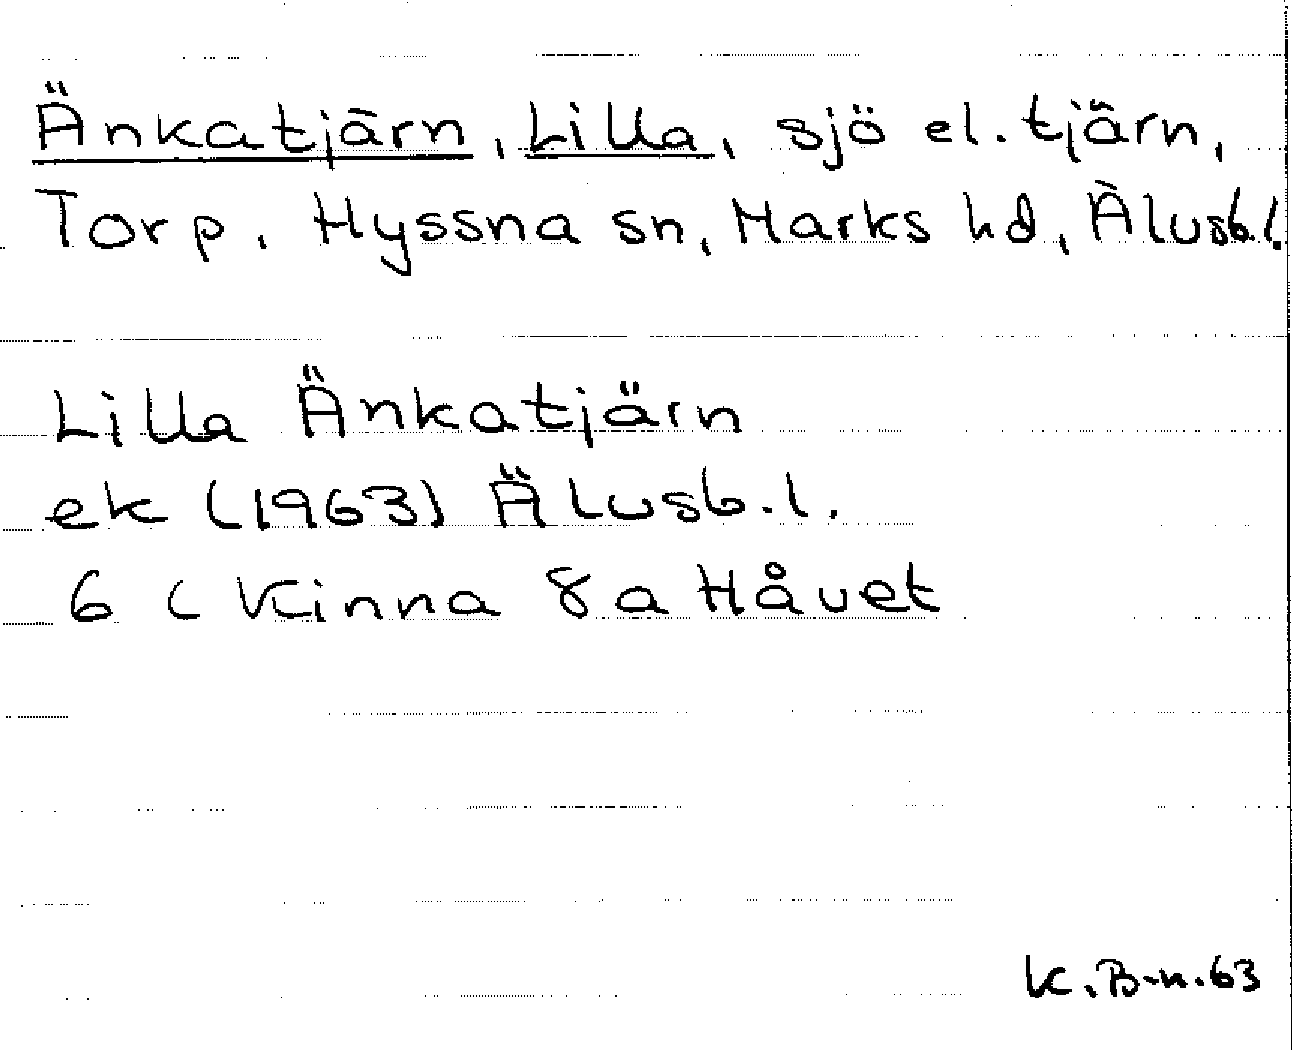 Änkatjärn, Lilla, sjö el. tjärn,
Torp. Hyssna sn, Marks hd, Älvsb.l.
Lilla Änkatjärn
ek (1963) Älvsb.l.
6 C Kinna 8a Håvet
K.B-n.63